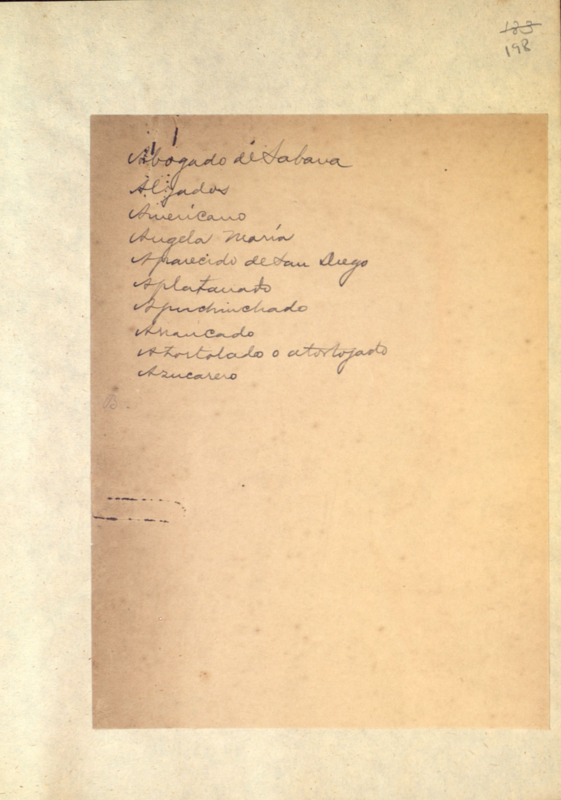 133
198
Abogado de Sabana
Alijados
Americano
Angela María
Aparecido de San Diego
Aplatanado
Apuchinchado
Arrancado
Atortolado o atortojado
Azucarero
B